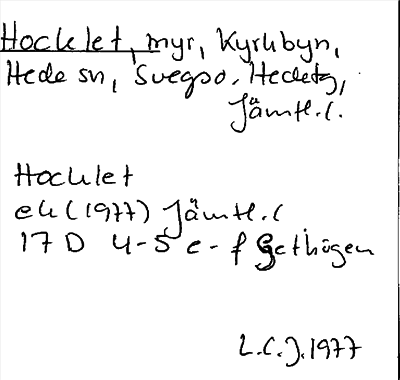 Hocklet, myr, Kyrkbyn,
Hede sn, Svegso. Hedetg,
Jämtl.l.
Hocklet
ek (1977) Jämtl.l
17 D 4-5 e-f Gethögen
L.C.J. 1977